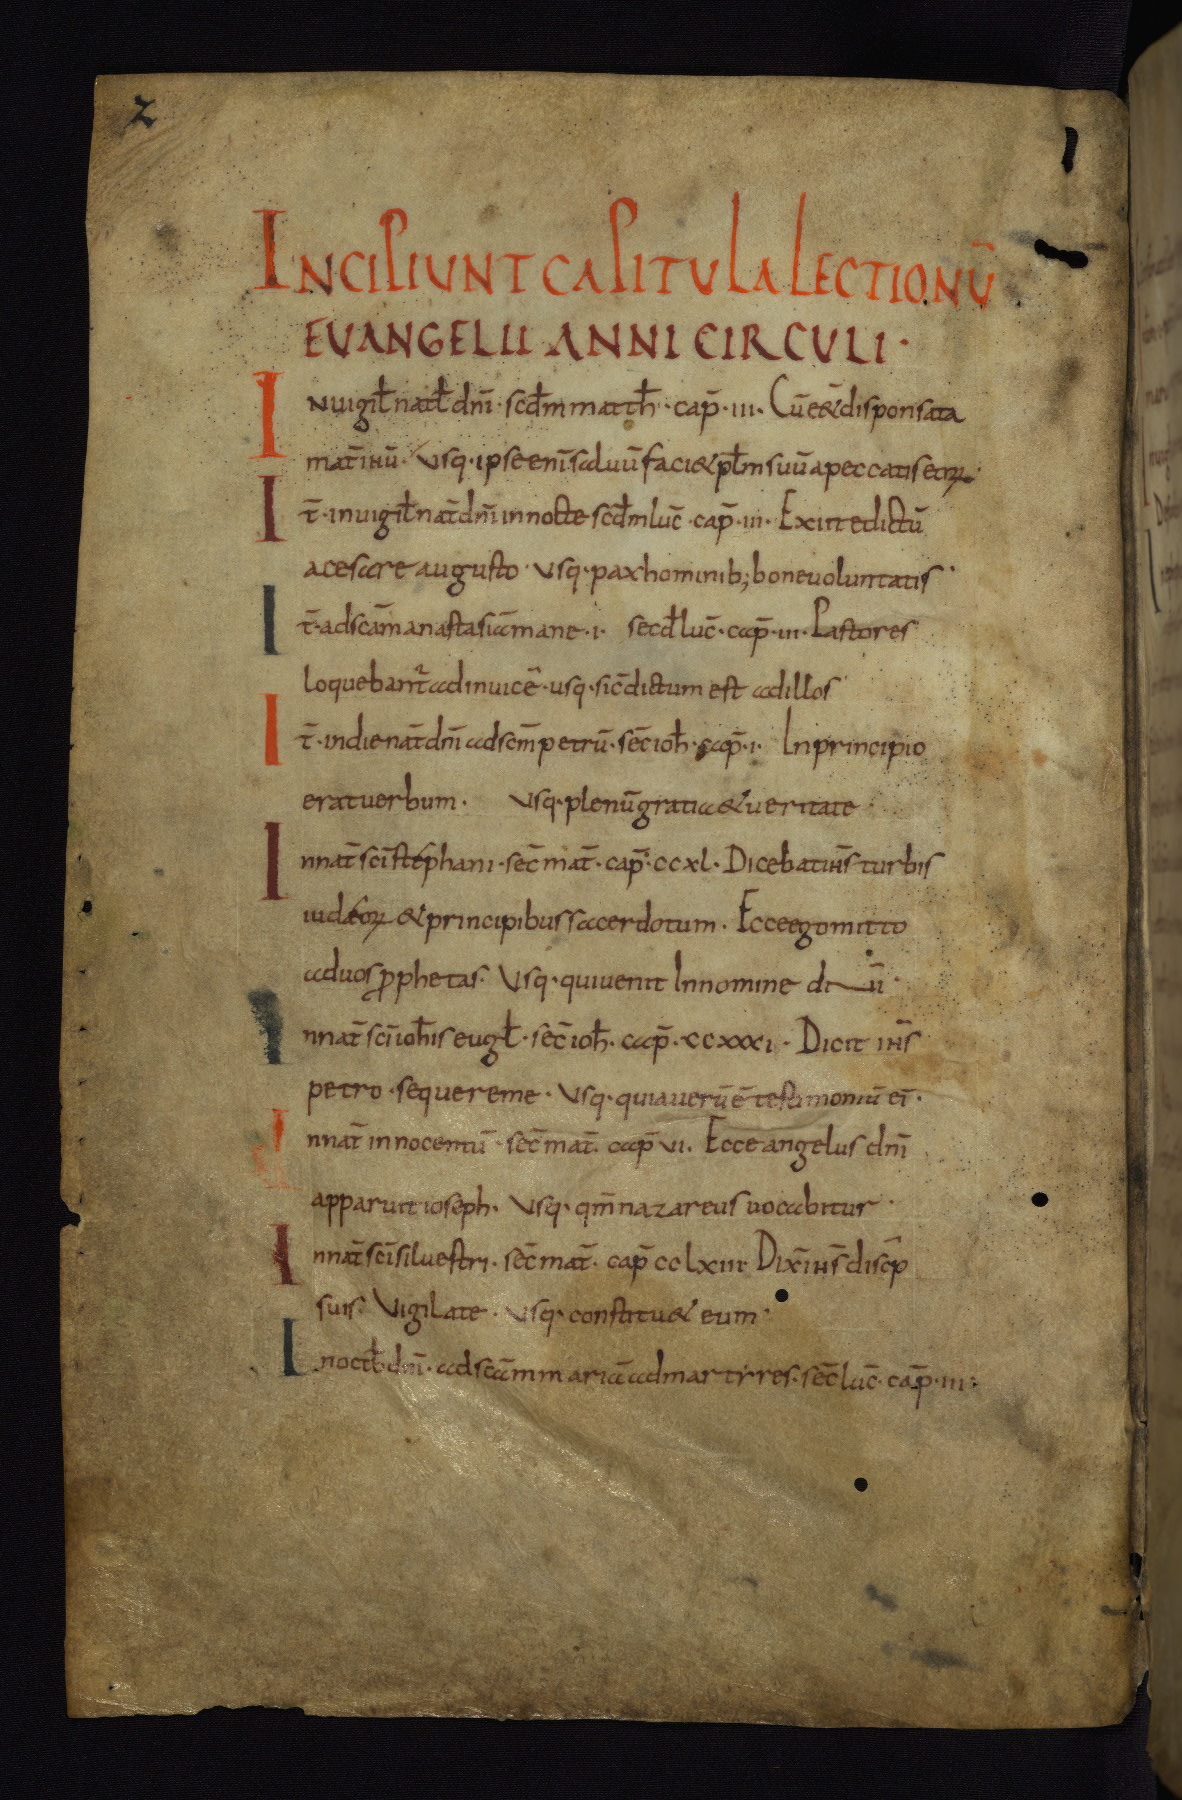 z
INCIPIUNT CAPITULA LECTIONŪ
EVANGELII ANNI CIRCULI ·
IN uigil̄ natl̄ dn̄i · scd̄m matth̄ · cap̄ · iii · Cū eēt disponsata
mat̄ ihū · Vsq · ipse eni̅ saluū faciet pl̄m suū a peccatis eorꝝ ·
It̄ · in uigil̄ nat̄ dn̄i in nocte scd̄m luc̄ · cap̄ · iii · Exiit edictū
a cesare augusto · Vsq · pax hominib; bone uoluntatis ·
It̄ · ad scām anastasiā mane · i · secd̄ luc̄ · cap̄ · iii · Pastores
loquebant᷑ ad inuicē · usq · sic̄ dictum est ad illos
It̄ · in die nat̄ dn̄i ad scm̄ petrū · sec̄ ioh̄ · cap̄ · i · In principio
erat uerbum · Vsq · plenū gratia & ueritate ·
In nat̄ sci̅ stephani · sec̄ mat̄ · cap̄ · ccxl · Dicebat ih̄s turbis
iudęorꝝ & principibus sacerdotum · Ecce ego mitto
ad uos ꝓphetas · Vsq · qui uenit In nomine dn̄i ·
In nat̄ sci̅ ioh̄is eugl̄ · sec̄ ioh̄ · cap̄ · ccxxxi · Dicit ih̄s
petro · sequere me · Vsq · quia uerū ē testimoniū ei̅ ·
In nat̄ innocentū · sec̄ mat̄ · cap̄ vi · Ecce angelus dn̄i
apparuit ioseph · Vsq · qm̄ nazareus uocabitur ·
In nat̄ sci̅ siluestri · sec̄ mat̄ · cap̄ cclxiii Dix̄ ih̄s discip̄
suis · Vigilate · Vsq · constituet eum ·
In octb̄ dn̄i · ad scām mariā ad martyres · sec̄ luc̄ · cap̄ · iii ·